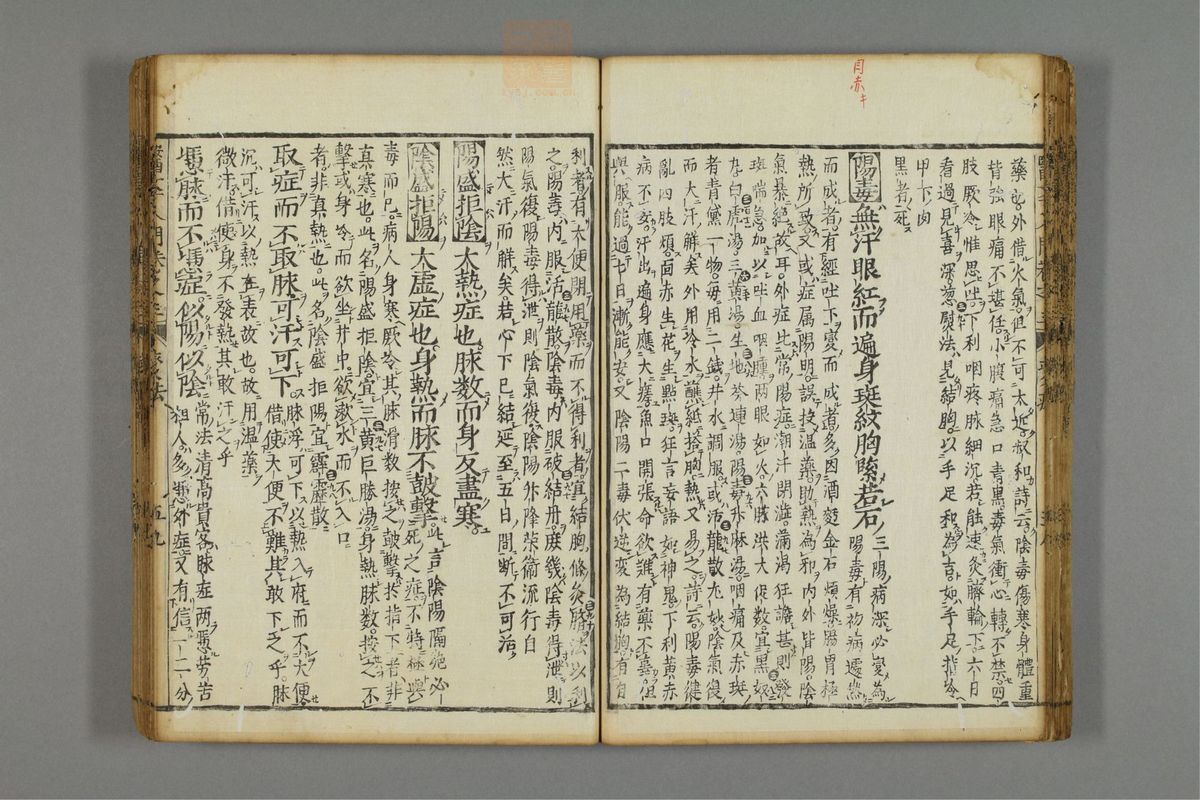 月赤キ
藥於外借火氣但不可太近叔和詩云陰毒傷寒身體重
背強眼痛不堪任小腹痛急口青黑毒氣衝心轉不禁四
肢厥冷惟思吐下利咽疼脉細沉若能速灸臍輪下六日
看過見喜深葱熨法見結胸以手足和為吉如手足指冷
甲下肉
黑者死
陽毒無汗眼紅而遍身斑紋胸緊若石三陽病深必變為陽毒有初病遽然
而成者有經吐下變而成者多因酒麪金石煩燥腸胃極
熱所致又或症属陽明誤投温藥助熱為邪內外皆陽陰
氣暴絕故耳外症比常陽症潮汗閉澁滿渴狂譫甚則發
斑喘急加以吐血咽腫兩眼如火六脉洪大促数宜黑奴
丸白虎湯三黃湯生地芩連湯陽毒升麻湯咽痛及赤斑
者青黛一物每用二錢井水調服或活龍散尤妙陰氣復
而大汗解矣外用冷水蘸紙搭胸熱又易之詩云陽毒健
亂四肢煩面赤生花生點斑狂言妄語如神鬼下利黃赤
病不安汗出遍身應大瘥魚口開張命欲難有藥不䑓但
與服能過七日漸能安又陰陽二毒伏逆変為結胸有自
利者有大便閉用藥而不得利者宜結胸條灸臍法以利
之陽毒內服活龍散陰毒內服破結丹庶幾陰毒得泄則
陽氣復陽毒得泄則陰氣復陰陽升降榮衛流行自
然大汗而解矣若心下已結延至五日間斷不可治
陽盛拒陰大熱症也脉数而身反盡寒
陰盛拒陽大虚症也身熱而脉不皷擊此言陰陽隔絕必死之症不特極與
毒而已病人身寒厥冷其脉滑数按之皷擊於指下者非
真寒也此名陽盛拒陰宜三黃巨勝湯身熱脉数按之不
擊或身冷而欲坐井中欲漱水而不入口
者非真熱也此名陰盛拒陽宜霹靂散
取症而不取脉可汗可下脉浮可下以熱入府而不大便借使大便不難其敢下乎脉
沉可汗以熱在表故也故用温藥
微汗借使身不發熱其敢汗之乎
憑脉而不憑症似陽似陰常法清高貴客脉症兩憑劳苦粗人多憑外症又有信一二分